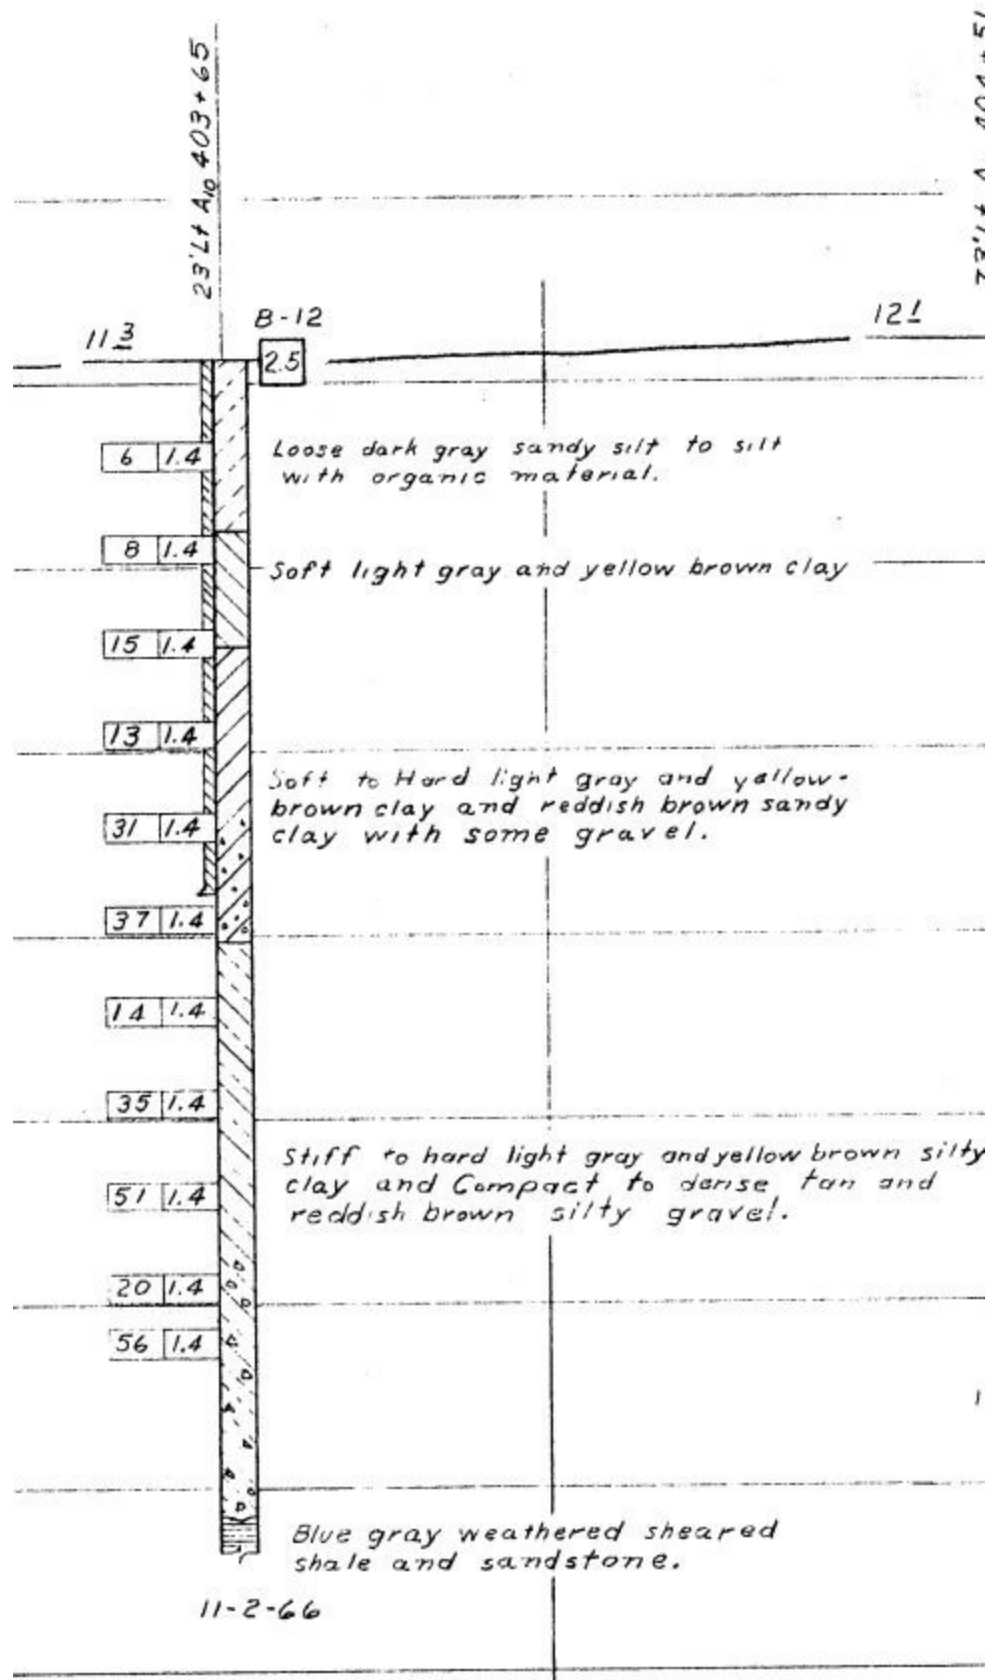 23' Lt A10 403+65
B-12
11 3
2.5
12 1
6 1.4
Loose dark gray sandy silt to silt
with organic material.
8 1.4
Soft light gray and yellow brown clay
15 1.4
13 1.4
Soft to Hard light gray and yellow-
brown clay and reddish brown sandy
clay with some gravel.
31 1.4
37 1.4
14 1.4
35 1.4
Stiff to hard light gray and yellow brown silty
clay and Compact to dense tan and
reddish brown silty gravel.
51 1.4
20 1.4
56 1.4
Blue gray weathered sheared
shale and sandstone.
11-2-66